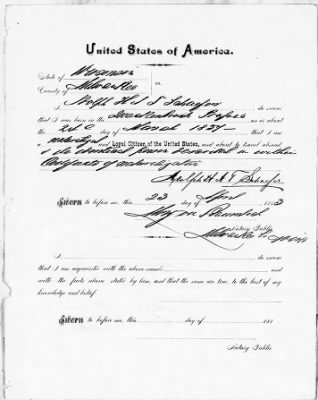 United States of America.
State of Wisconsin
County of Milwaukee ss.
I, Adolph H. A. F. Schaefer do swear
that I was born in Prussia on or about
the 24 day of March 1837 that I am
a naturalized and Loyal Citizen of the United States, and about to travel abroad
& the identical person described in within
Certificate of naturalization
Adolph H. A. F. Schaefer
Sworn to before me, this 23 day of April 188
Notary Public
Milwaukee Co.
I, do swear
that I am acquainted with the above named and
with the facts above stated by him, and that the same are true, to the best of my
knowledge and belief.
Sworn to before me, this day of 188
Notary Public